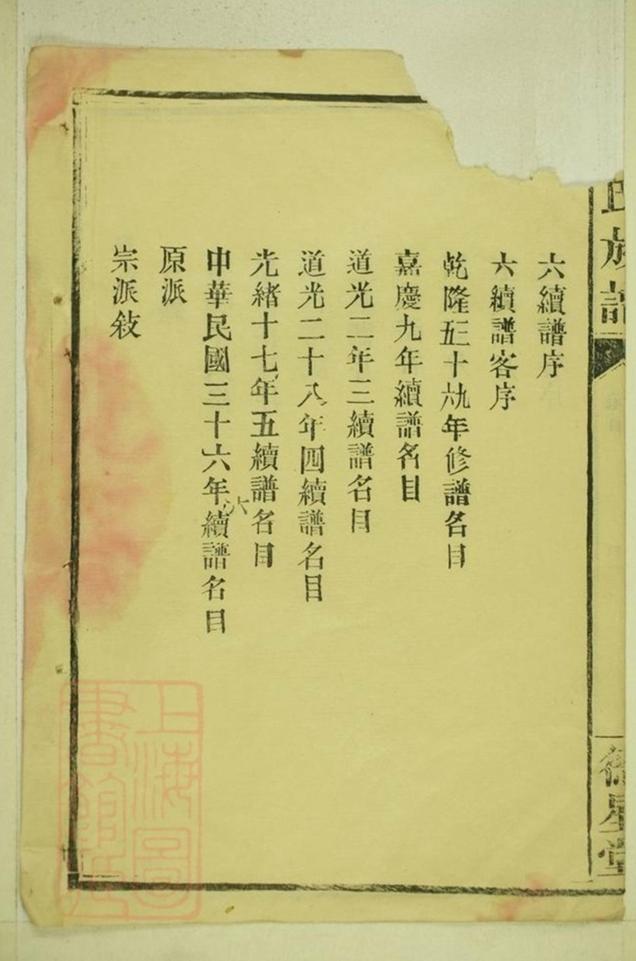 氏族譜
星堂
六續譜序
六續譜客序
乾隆五十九年修譜名目
嘉慶九年續譜名目
道光二年三續譜名目
道光二十八年四續譜名目
光緒十七年五續譜名目
中華民國三十六年六續譜名目
原派
宗派敘
上海圖
書館藏